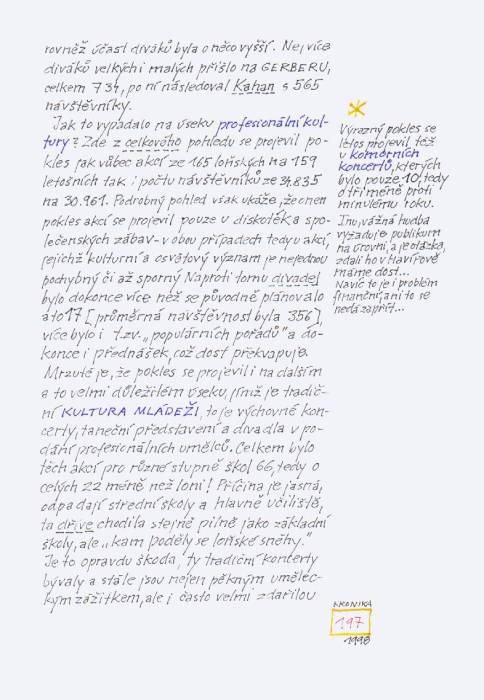 rovněž účast diváků byla o něco vyšší. Nejvíce
diváků velkých i malých přišlo na GERBERU,
celkem 734, po ní následoval Kahan s 565
návštěvníky.
Jak to vypadalo na úseku profesionální kul-
tury? Zde z celkového pohledu se projevil po-
kles jak vůbec akcí ze 165 loňských na 159
letošních tak i počtu návštěvníků ze 34.835
na 30.961. Podrobný pohled však ukáže, že onen
pokles akcí se projevil pouze u diskoték a spo-
lečenských zábav - v obou případech tedy u akcí,
jejichž kulturní a osvětový význam je nejednou
pochybný či až sporný. Naproti tomu divadel
bylo dokonce více než se původně plánovalo
a to 17 [průměrná návštěvnost byla 356],
více bylo i t.zv. „populárních pořadů" a do-
konce i přednášek, což dost překvapuje.
Mrzuté je, že pokles se projevil i na dalším
a to velmi důležitém úseku, jímž je tradič-
ní KULTURA MLÁDEŽI, to je výchovné kon-
certy, taneční představení a divadla v po-
dání profesionálních umělců. Celkem bylo
těch akcí pro různé stupně škol 66, tedy o
celých 22 méně než loni! Příčina je jasná,
odpadají střední školy a hlavně učiliště,
ta dříve chodila stejně pilně jako základní
školy, ale „kam poděly se loňské sněhy."
Je to opravdu škoda, ty tradiční koncerty
bývaly a stále jsou nejen pěkným umělec-
kým zážitkem, ale i často velmi zdařilou
Výrazný pokles se
letos projevil též
u komorních
koncertů, kterých
bylo pouze 10, tedy
o tři méně proti
minulému roku.
Inu, vážná hudba
vyžaduje publikum
na úrovni, a je otázka,
zdali ho v Havířově
máme dost...
Navíc to je i problém
finanční, ani to se
nedá zapřít...
KRONIKA
197
1998